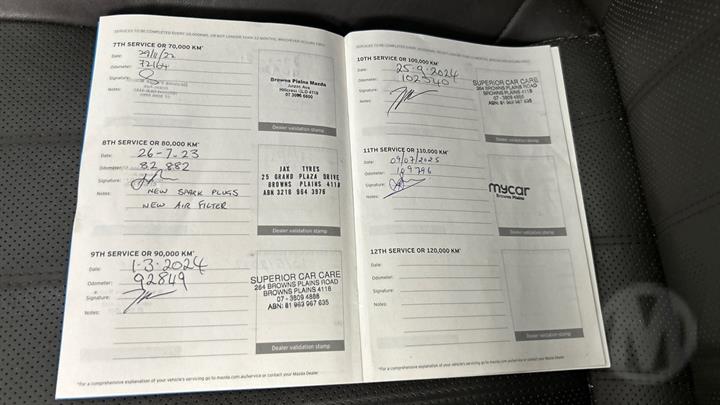 SERVICES TO BE COMPLETED EVERY 10,000KMS, OR NOT LONGER THAN 12 MONTHS, WHICHEVER OCCURS FIRST
7TH SERVICE OR 70,000 KM*
Date: 29/11/22
Odometer:
Signature:
Notes:
Browns Plains Mazda
Hillcrest QLD 4118
Dealer validation stamp
8TH SERVICE OR 80,000 KM*
Date: 26-7.23
Odometer: 82 882
Signature:
Notes: NEW SPARK PLUGS
NEW AIR FILTER
JAX TYRES
25 GRAND PLAZA DRIVE
BROWNS PLAINS 4118
ABN 3216 964 3976
Dealer validation stamp
9TH SERVICE OR 90,000 KM*
Date: 1.3.2024
Odometer: 92849
Signature:
Notes:
SUPERIOR CAR CARE
264 BROWNS PLAINS ROAD
BROWNS PLAINS 4118
07 - 3809 4888
ABN: 81 963 967 635
Dealer validation stamp
*For a comprehensive explanation of your vehicle's servicing go to mazda.com.au/service or contact your Mazda Dealer
10TH SERVICE OR 100,000 KM*
Date: 25-9-2024
Odometer: 102540
Signature:
Notes:
SUPERIOR CAR CARE
264 BROWNS PLAINS ROAD
BROWNS PLAINS 4118
07 - 3809 4888
ABN: 81 963 967 635
Dealer validation stamp
11TH SERVICE OR 110,000 KM*
Date: 09/07/2025
Odometer: 109796
Signature:
Notes:
mycar
Browns Plains
Dealer validation stamp
12TH SERVICE OR 120,000 KM*
Date:
Odometer:
Signature:
Notes:
Dealer validation stamp
*For a comprehensive explanation of your vehicle's servicing go to mazda.com.au/service or contact your Mazda Dealer
M